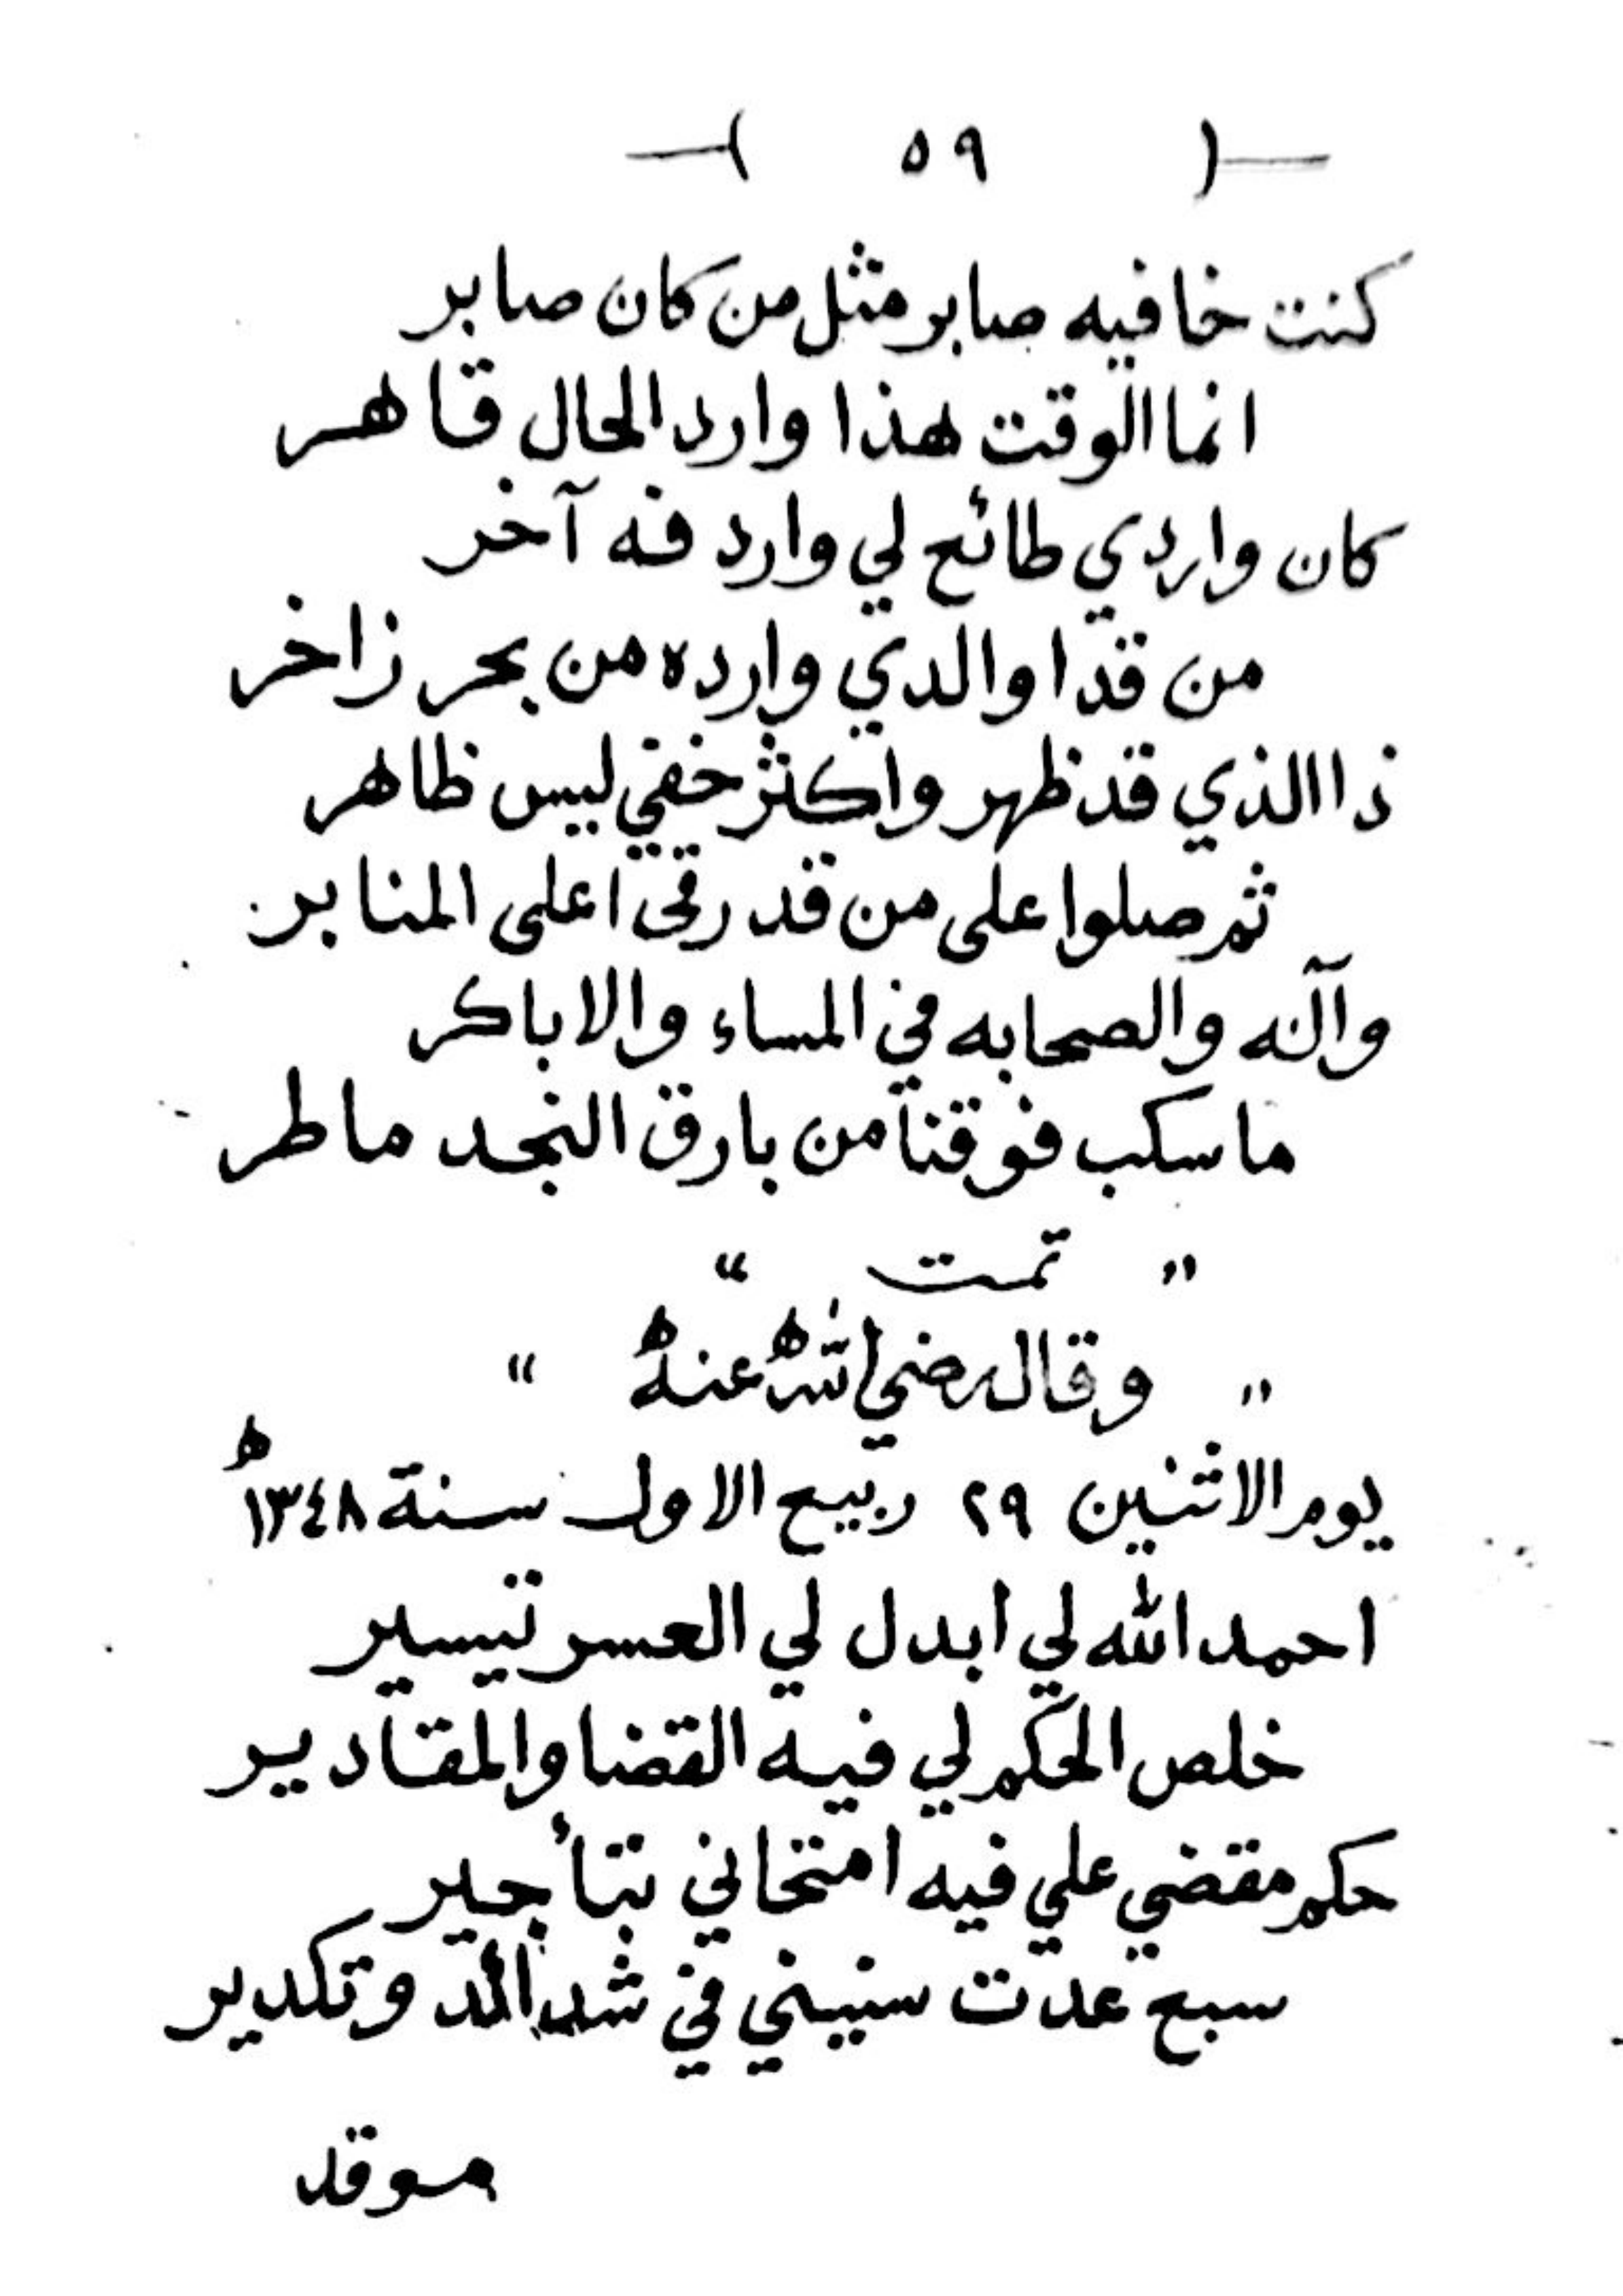 —( ٥٩ )—
كنت خافيه صابر مثل من كان صابر
انما الوقت هذا وارد الحال قاهر
كان واردي طائع لي وارد فه آخر
من قدا والدي وارده من بحر زاخر
ذا الذي قد ظهر واكثر خفي ليس ظاهر
ثم صلوا على من قد رقى اعلى المنابر
وآله والصحابه في المساء والاباكر
ما سكب فوقنا من بارق النجد ماطر
" تمت "
" وقال رضي الله عنه "
يوم الاثنين ٢٩ ربيع الاول سنة ١٣٤٨ھ
احمد الله لي أبدل لي العسر تيسير
خلص الحكم لي فيه القضا والمقادير
حكم مقضي علي فيه امتحاني بتأجير
سبع عدت سنيني في شدائد وتكدير
موقد